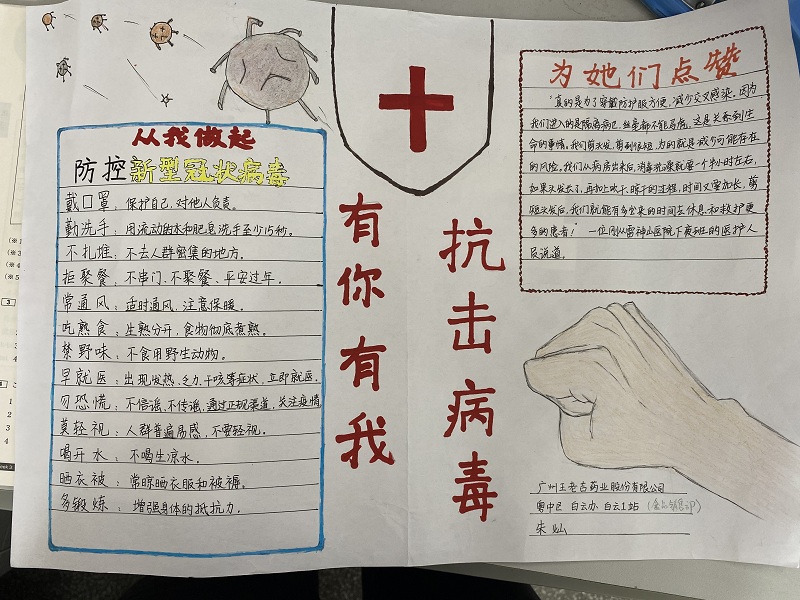 从我做起
防控新型冠状病毒
戴口罩：保护自己，对他人负责。
勤洗手：用流动的水和肥皂洗手至少15秒。
不扎推：不去人群密集的地方。
拒聚餐：不串门、不聚餐、平安过年。
常通风：适时通风，注意保暖。
吃熟食：生熟分开，食物彻底煮熟。
禁野味：不食用野生动物。
早就医：出现发热、乏力、干咳等症状，立即就医。
勿恐慌：不信谣、不传谣，通过正规渠道，关注疫情
莫轻视：人群普遍易感，不要轻视。
喝开水：不喝生凉水。
晒衣被：常晾晒衣服和被褥。
多锻炼：增强身体的抵抗力。
抗击病毒
有你有我
为她们点赞
"真的是为了穿戴防护服方便，减少交叉感染。因为
我们进入的是隔离病区，丝毫都不能马虎。这是关系到生
命的事情。我们剪头发，剪到很短，为的就是减少可能存在
的风险。我们从病房出来后，消毒洗澡就要一个半小时左右，
如果头发长了，再加上吹干、晾干的过程，时间又要加长。剪
短头发后，我们就能有多出来的时间去休息和救护更
多的患者！" 一位刚从雷神山医院下夜班的医护人
员说道。
广州王老吉药业股份有限公司
粤中区 白云办 白云1站
朱灿